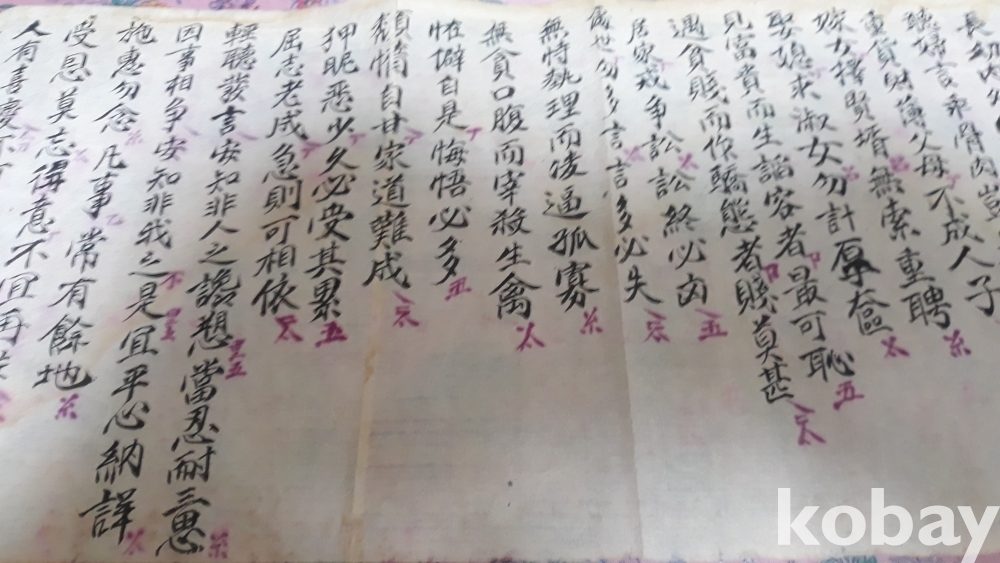 長幼內外
聽婦言乖骨肉豈
重貲財薄父母不成人子
嫁女擇賢壻無索重聘
娶媳求淑女勿計厚奩
見富貴而生諂容者最可恥
遇貧賤而作驕態者賤莫甚
居家戒爭訟訟終必凶
處世勿多言言多必失
無恃勢理而凌逼孤寡
無貪口腹而宰殺生禽
恠僻自是悔悟必多
頹惰自甘家道難成
狎昵惡少久必受其累
屈志老成急則可相依
輕聽發言安知非人之譖愬當忍耐三思
因事相爭安知非我之是宜平心納詳
施惠勿念凡事常有餘地
受恩莫忘得意不宜再
人有喜慶不可
kobay